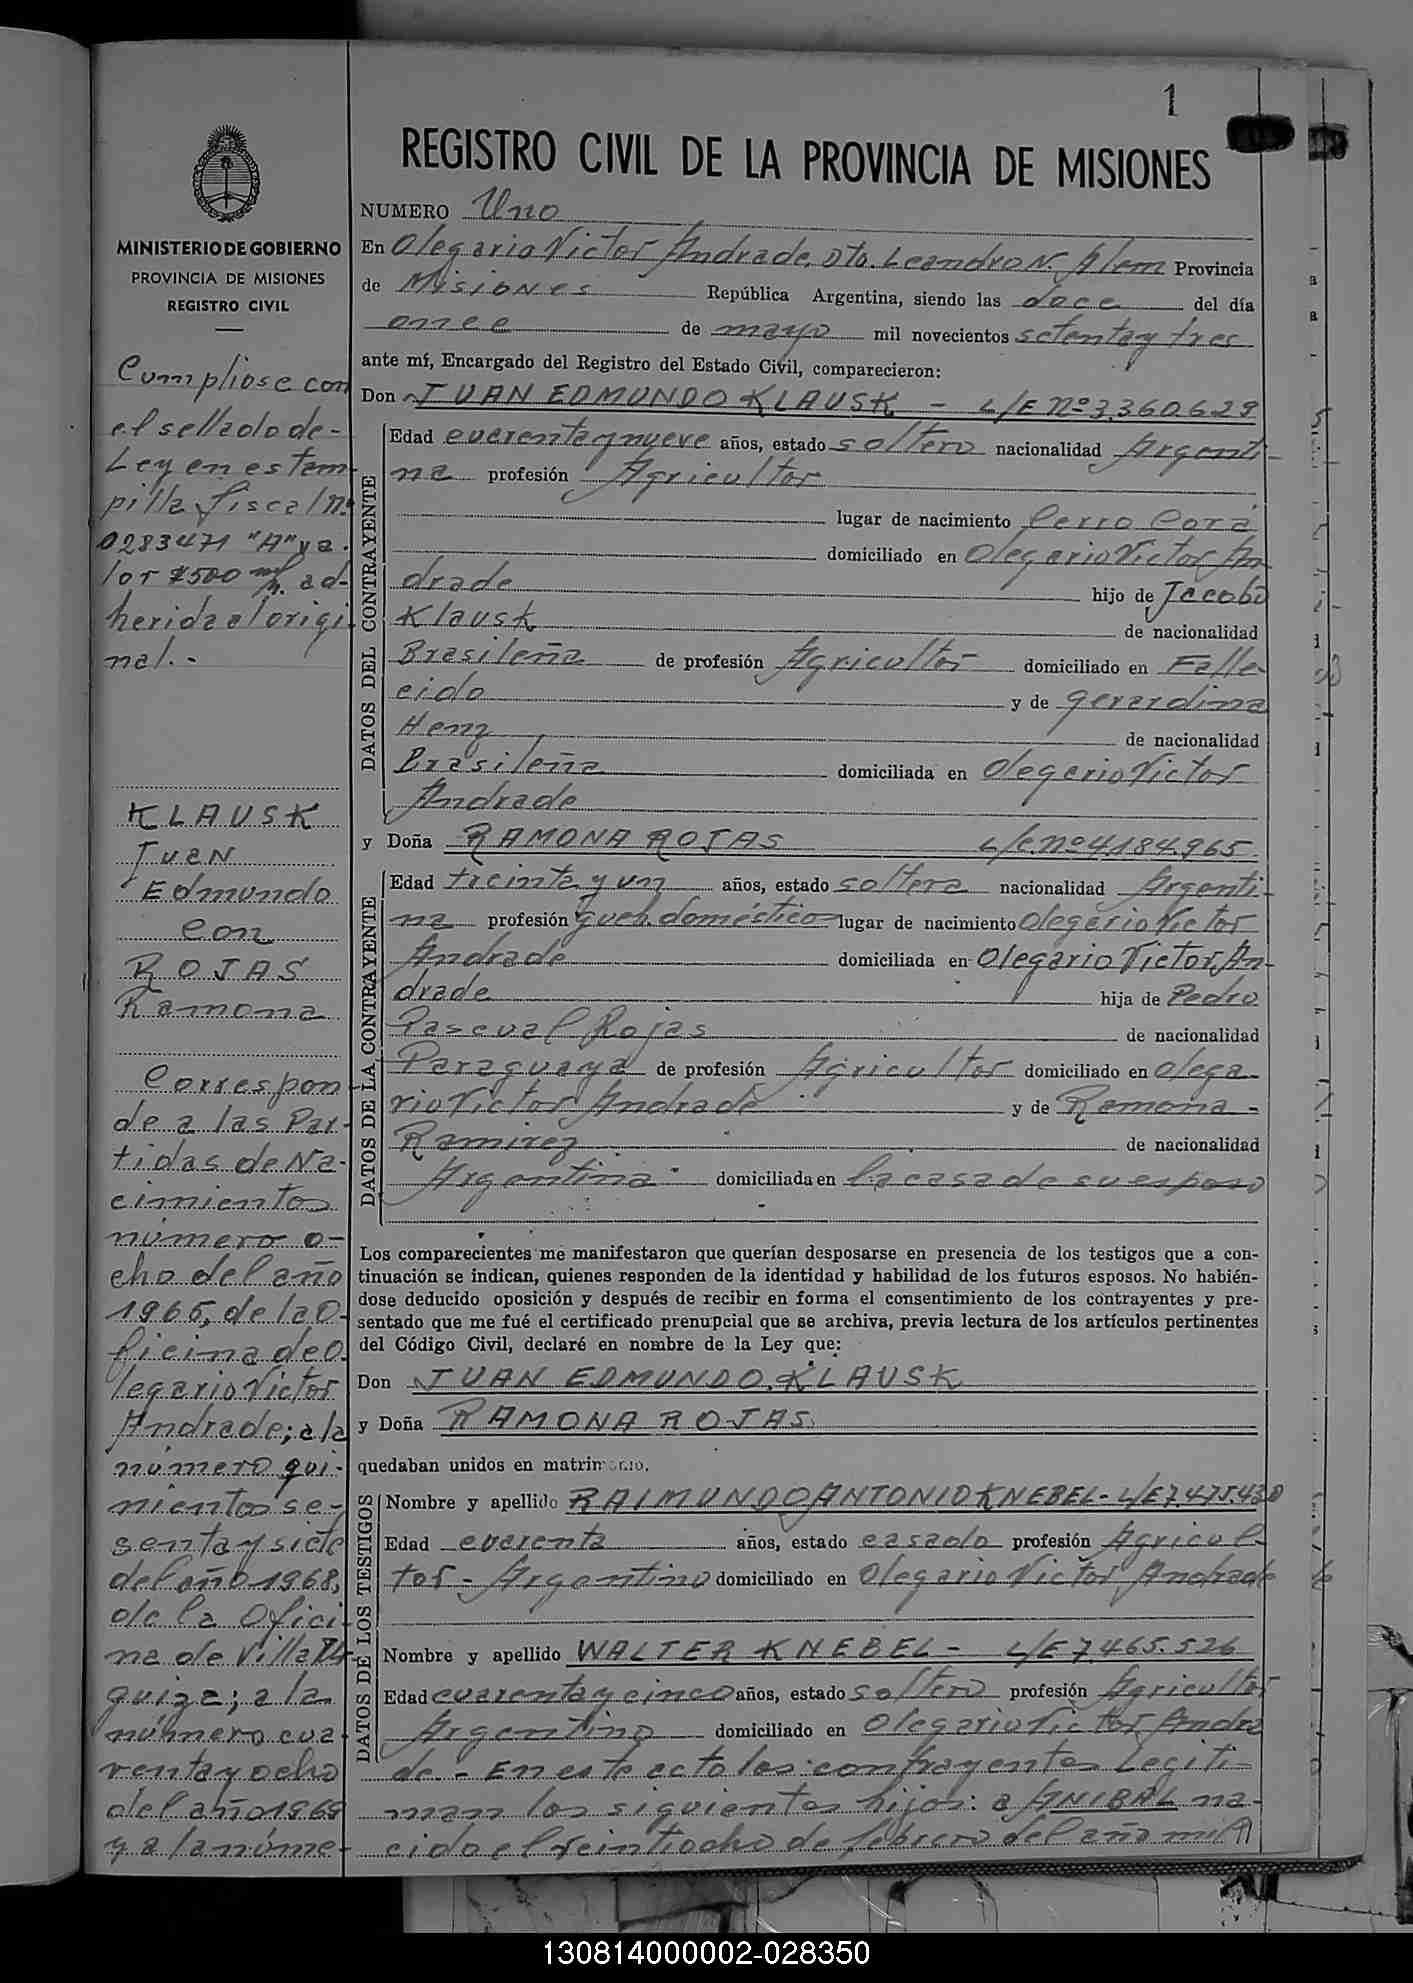 1
REGISTRO CIVIL DE LA PROVINCIA DE MISIONES
MINISTERIO DE GOBIERNO
PROVINCIA DE MISIONES
REGISTRO CIVIL
Cumpliose con
el sellado de-
Ley en estam
pilla fiscal nº
0283471 "A" va.
lor $500 m/n. ad-
herida al origi
nal.-
KLAUSK
Juan
Edmundo
con
ROJAS
Ramona
Correspon
de a las Par-
tidas de Na-
cimientos
número o-
cho del año
1965, de la O-
ficina de O.
legario Victor
Andrade; a la
número qui-
nientos se-
senta y siete
del año 1968,
de la Ofici-
na de Villa Ur-
quiza; a la
número cua-
renta y ocho
del año 1969
y a la núme-
NUMERO Uno
En Olegario Victor Andrade, Dto. Leandro N. Alem Provincia
de Misiones República Argentina, siendo las doce del día
once de mayo mil novecientos setenta y tres
ante mí, Encargado del Registro del Estado Civil, comparecieron:
Don JUAN EDMUNDO KLAUSK - L/E Nº 3.360.629
DATOS DEL CONTRAYENTE
Edad cuarenta y nueve años, estado soltero nacionalidad Argenti-
na profesión Agricultor
lugar de nacimiento Cerro Corá
domiciliado en Olegario Victor An
drade hijo de Jacobo
Klausk de nacionalidad
Brasileña de profesión Agricultor domiciliado en Falle-
cido y de Gerardina
Henz de nacionalidad
Brasileña domiciliada en Olegario Victor
Andrade
y Doña RAMONA ROJAS L/c. nº 4.184.965
DATOS DE LA CONTRAYENTE
Edad treinta y un años, estado soltera nacionalidad Argenti-
na profesión queh. doméstico lugar de nacimiento Olegario Victor
Andrade domiciliada en Olegario Victor An-
drade hija de Pedro
Pascual Rojas de nacionalidad
Paraguaya de profesión Agricultor domiciliado en Olega-
rio Victor Andrade y de Ramona-
Ramirez de nacionalidad
Argentina domiciliada en la casa de su esposo
Los comparecientes me manifestaron que querían desposarse en presencia de los testigos que a con-
tinuación se indican, quienes responden de la identidad y habilidad de los futuros esposos. No habién-
dose deducido oposición y después de recibir en forma el consentimiento de los contrayentes y pre-
sentado que me fué el certificado prenupcial que se archiva, previa lectura de los artículos pertinentes
del Código Civil, declaré en nombre de la Ley que:
Don JUAN EDMUNDO KLAUSK
y Doña RAMONA ROJAS
quedaban unidos en matrimonio.
DATOS DE LOS TESTIGOS
Nombre y apellido RAIMUNDO ANTONIO KNEBEL- L/E 7.475.430
Edad cuarenta años, estado casado profesión Agricul-
tor - Argentino domiciliado en Olegario Victor Andrade
Nombre y apellido WALTER KNEBEL - L/E 7.465.526
Edad cuarenta y cinco años, estado soltero profesión Agricultor
Argentino domiciliado en Olegario Victor Andra
de.- En este acto los contrayentes Legiti-
man los siguientes hijos: a ANIBAL na-
cido el veintiocho de febrero del año mil
130814000002-028350